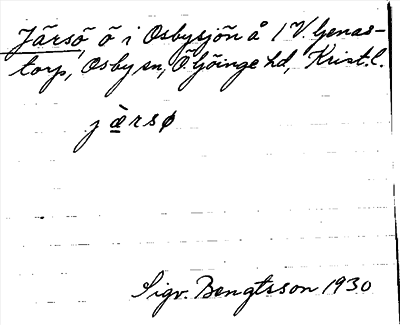 Järsö, ö i Osbysjön å 1 V. Genas-
torp, Osby sn, Ö. Göinge hd, Krist. l.
j æ̀rsø
Sigv. Bengtsson 1930